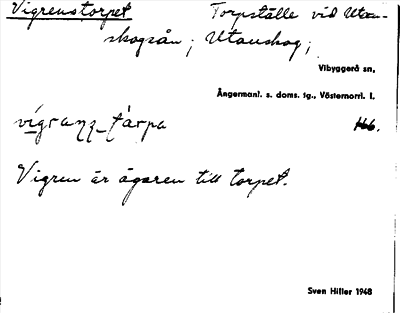 Vigrenstorpet Torpställe vid Utan-
skogsån; Utanskog;
Vibyggerå sn,
Ångermanl. s. doms. tg., Västernorrl. l.
166.
Vigren är ägaren till torpet.
Sven Hiller 1948